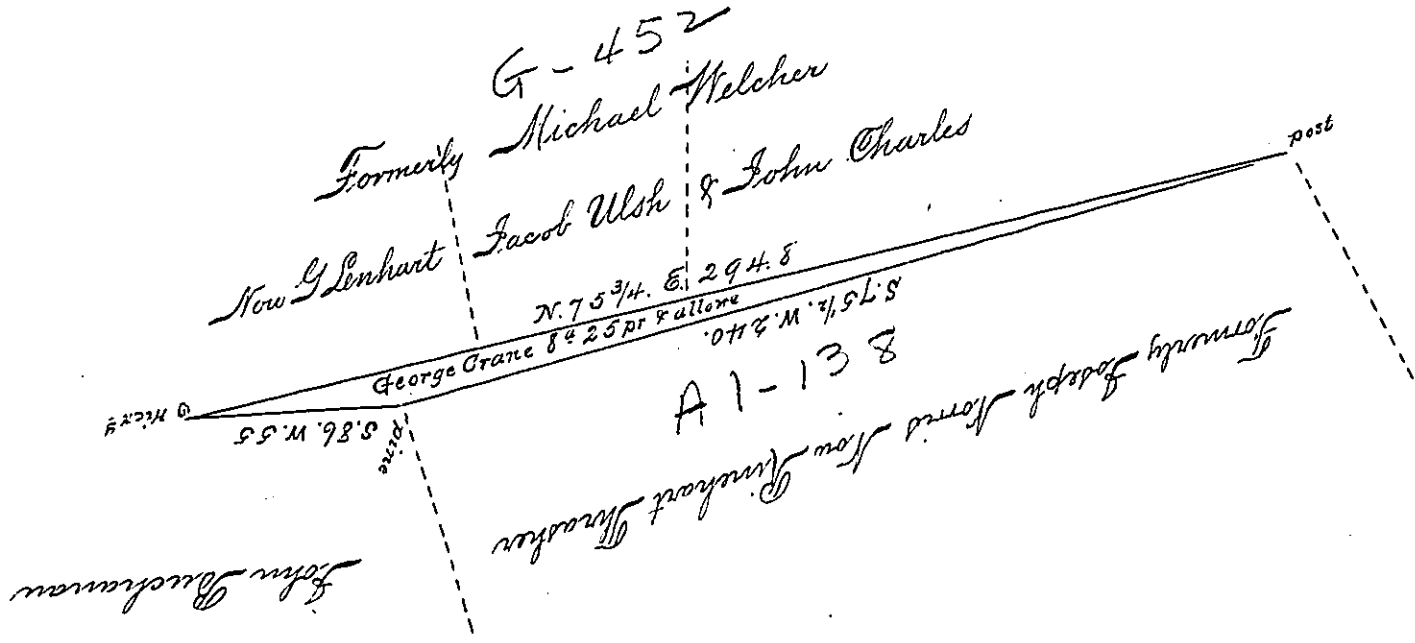 G-452
Formerly Michael Welcher
Now G Lenhart Jacob Ulsh & John Charles
post
N. 75 3/4. E 294.8
George Crane 8a 25 pr & allowe
S. 75 1/2. W. 240.
A1-138
Hicky
S. 86. W. 55
pine
Formerly Joseph Norris Now Rinehart Thrasher
John Buchanan